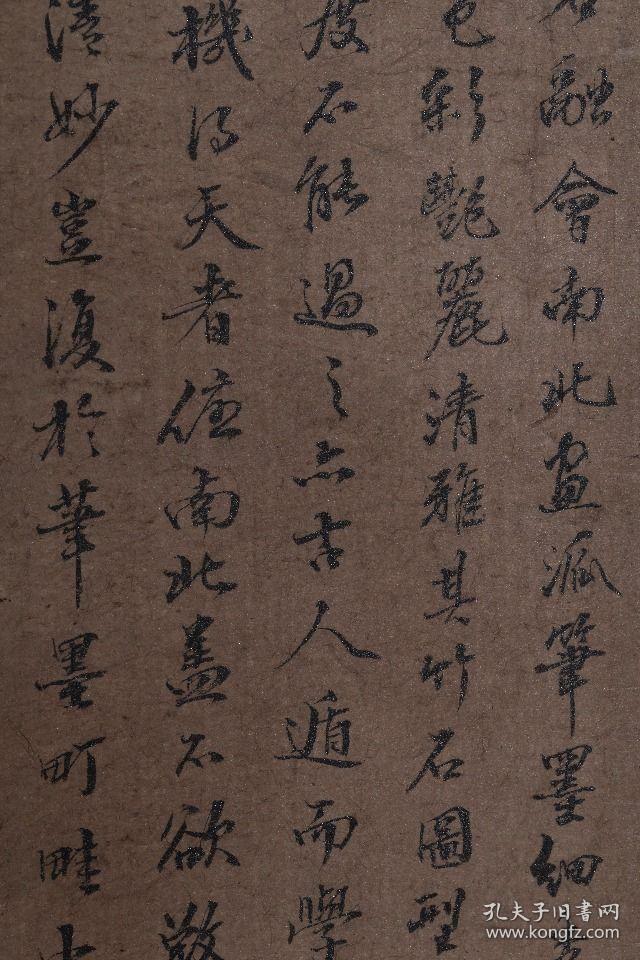 融會南北画派筆墨細
色彩艷麗清雅其竹石圖型
度不能過之亦古人遁而學
機得天者任南北盖不欲
清妙豈復於筆墨町畦
孔夫子旧书网
www.kongfz.com